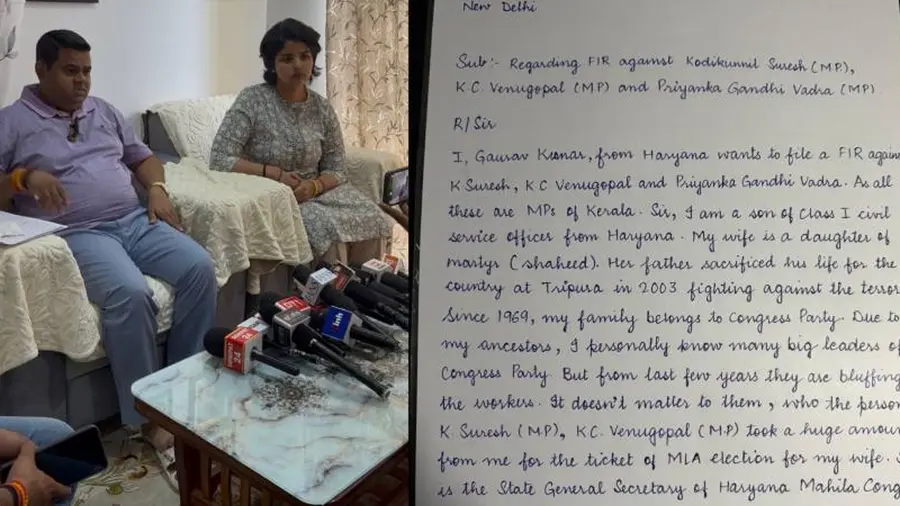 New Delhi
Sub:- Regarding FIR against Kodikunnil Suresh (M.P),
K.C. Venugopal (MP) and Priyanka Gandhi Vadra (MP)
R/Sir
I, Gaurav Kumar, from Haryana wants to file a FIR agains
K Suresh, K C Venugopal and Priyanka Gandhi Vadra. As all
these are MPs of Kerala. Sir, I am a son of Class I civil
service officer from Haryana. My wife is a daughter of
martyr (shaheed). Her father sacrificed his life for the
country at Tripura in 2003 fighting against the terror
Since 1969, my family belongs to Congress Party. Due to
my ancestors, I personally know many big leaders of
Congress Party. But from last few years they are bluffing
the workers. It doesn't matter to them, who the person
K. Suresh (M.P), K.C. Venugopal (M.P) took a huge amoun
from me for the ticket of MLA election for my wife.
is the State General Secretary of Haryana Mahila Cong
24
inh